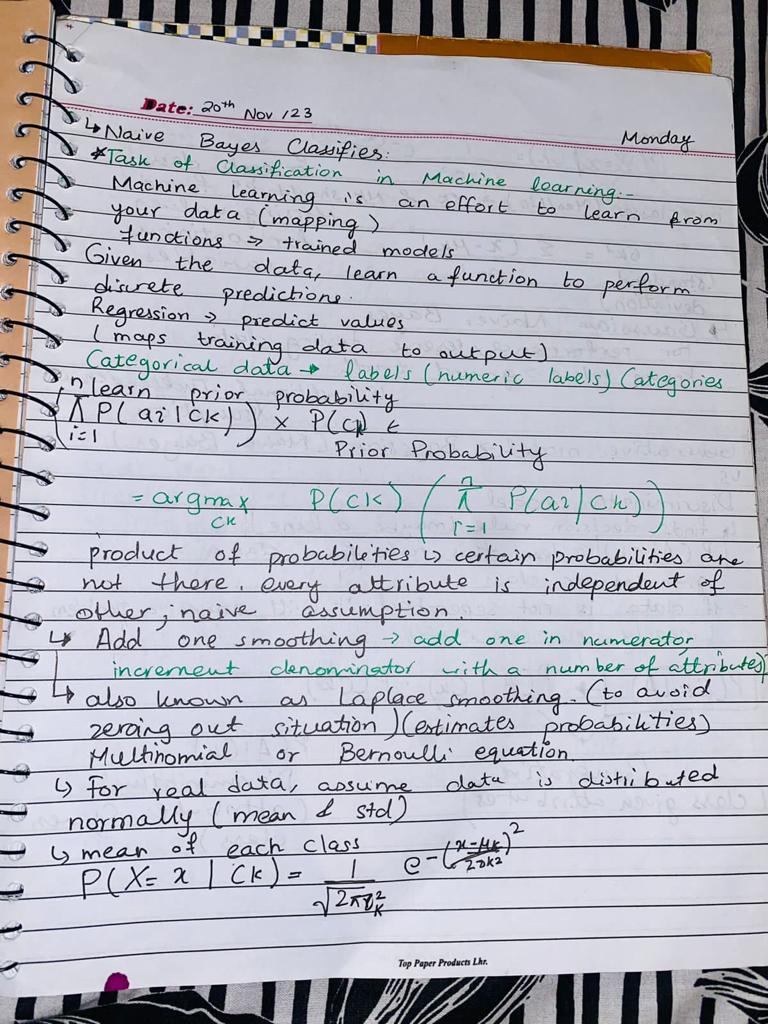 Date: 20th Nov /23
Monday
↳ Naive Bayes Classifies:
*Task of Classification in Machine learning:-
Machine learning is an effort to learn from
your data (mapping)
functions → trained models
Given the data, learn a function to perform
discrete predictions.
Regression → predict values
(maps training data to output)
Categorical data → labels (numeric labels) Categories
learn prior probability
(n π i=1 P(ai | Ck)) × P(Ck) ←
Prior Probability
= argmax Ck P(Ck) (n π i=1 P(ai | Ck))
product of probabilities ↳ certain probabilities are
not there. every attribute is independent of
other; naive assumption.
↳ Add one smoothing → add one in numerator,
increment denominator with a number of attributes)
↳ also known as Laplace smoothing. (to avoid
zeroing out situation) (estimates probabilities)
Multinomial or Bernoulli equation.
↳ For real data, assume data is distributed
normally (mean & std)
↳ mean of each class
P(X= x | Ck) = 1/√2πσ²k e-(x-μk/2σk²)²
Top Paper Products Lhr.